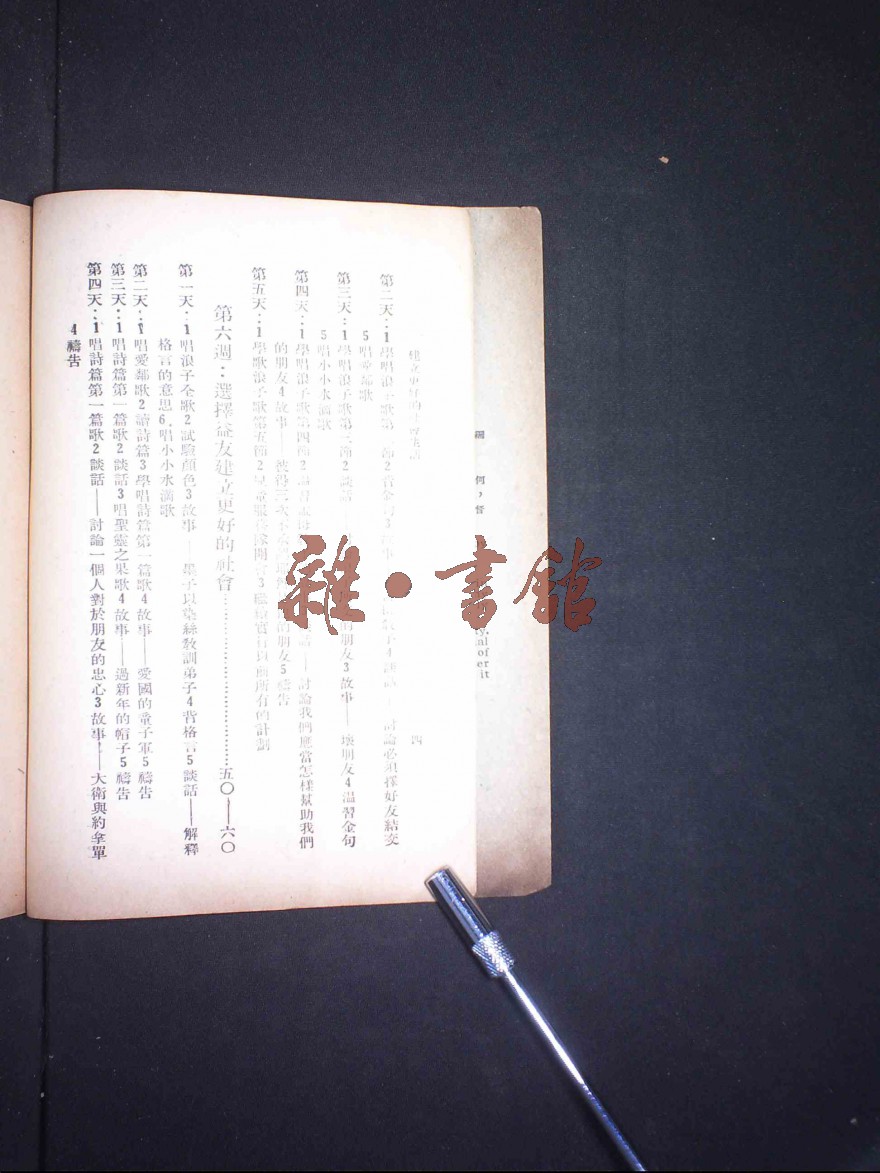 建立更好的
四
第二天：1學唱浪子歌第二節2背金句3故事 討論必須擇好友結交
5唱愛鄰歌
第三天：1學唱浪子歌第三節2談話 的朋友3故事——壞朋友4溫習金句
5唱小小水滴歌
第四天：1學唱浪子歌第四節2溫習 討論我們應當怎樣幫助我們
的朋友4故事——彼得三次不 的朋友5禱告
第五天：1學歌浪子歌第五節2兒童服務隊開會3繼續實行以前所有的計劃
第六週：選擇益友建立更好的社會……五〇——六〇
第一天：1唱浪子全歌2試驗顏色3故事——墨子以染絲教訓弟子4背格言5談話——解釋
格言的意思6.唱小小水滴歌
第二天：1唱愛鄰歌2讀詩篇3學唱詩篇第一篇歌4故事——愛國的童子軍5禱告
第三天：1唱詩篇第一篇歌2談話3唱聖靈之果歌4故事——過新年的帽子5禱告
第四天：1唱詩篇第一篇歌2談話——討論一個人對於朋友的忠心3故事——大衛與約拿單
4禱告
何，
al of
er it
雜·書館